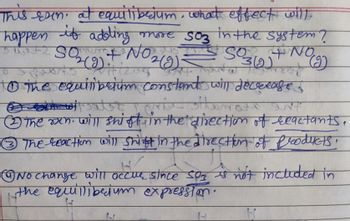 This rxn. at equilibrium. what effect will
happen if adding more SO3 in the system?
SO2(g) + NO2(g) ⇌ SO3(g) + NO(g)
① The equilibrium constant will decrease.
② The rxn. will shift in the direction of reactants.
③ The reaction will shift in the direction of products.
④ No change will occur since SO3 is not included in
the equilibrium expression.